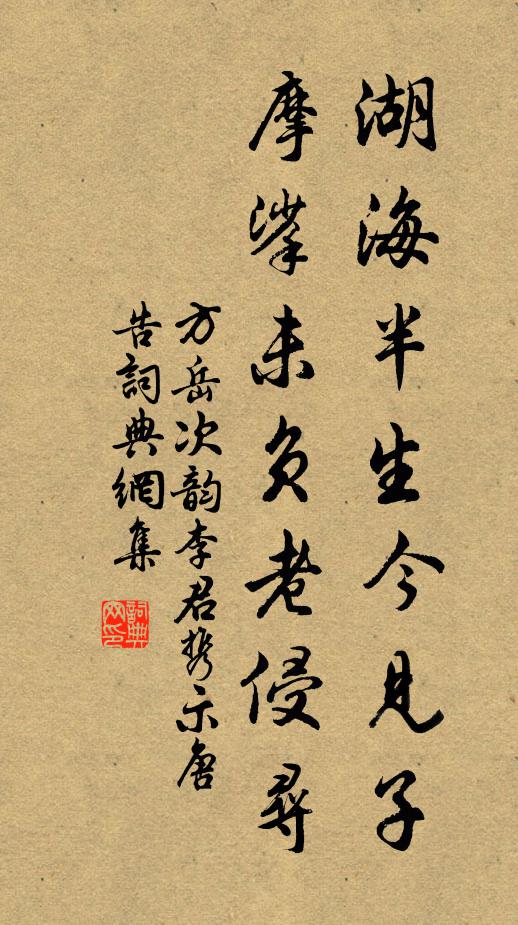 湖海半生今見子
摩挲未負老侵尋
方岳次韵李君攜示唐
告詞典網集
詞典
网印